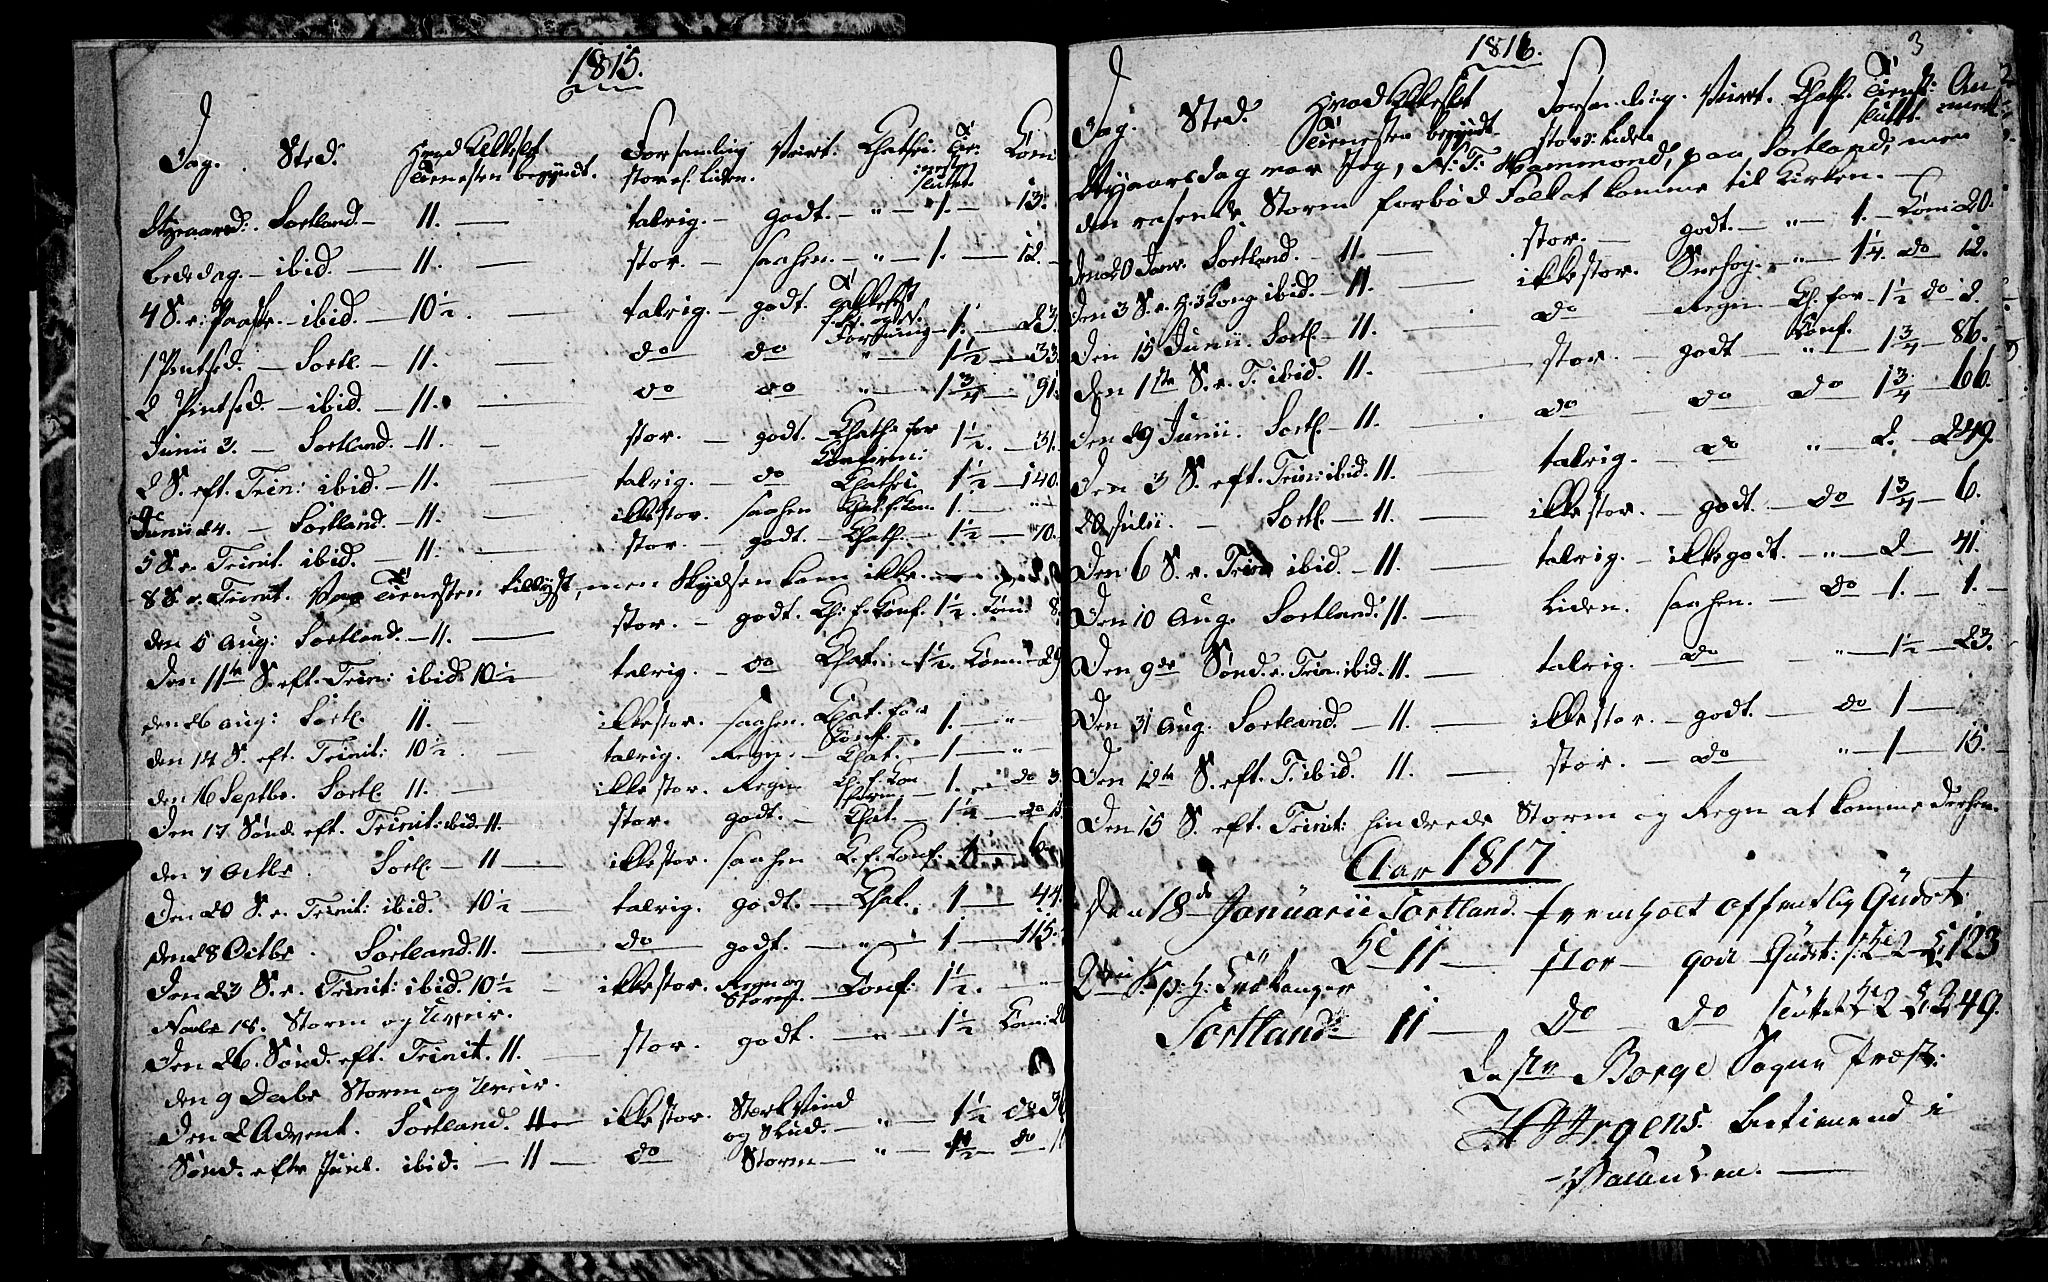 1815.
Dag. Sted. Hvad Klokkeslet Forsamling Veiret. Chathri: Tie: Com:
Tienesten begyndt. stor el. liden. nesten sluttet.
Nyeaarsd: Sortland. – 11. – talrig. – godt. – " – 1. – 13.
Bededag. – ibid. – 11. – stor. – saahen. – " – 1. – 12.
4 S. e. Paask. – ibid. – 10½. – talrig. – godt. – 1. – 23.
1 Pintsd. – Sortl. – 11. – do do " – 1½ – 33.
2 Pintsd. – ibid. – 11. – do do " – 1¾ – 91.
Junii 3. – Sortland. – 11. – stor. – godt. – Chath. for 1½ – 31.
Confirm:
2 S. eft. Trin: ibid. – 11. – talrig. – do Chathri. 1½ – 140.
Junii 24. – Sortland. – 11. – ikke stor. saahen Chat. f. Con. 1. – "
5 S. e. Trinit. ibid. – 11. – stor. – godt. – Chath. – 1½ – 70.
8 S. e. Trinit. Var Tienesten tillyst, men Skydsen kom ikke.
den 5 Aug: Sortland. – 11. – stor. – godt. Ch: f. Conf. 1½. Com: 8.
Den 11te S. eft. Trin: ibid. 10½ – talrig. – do Chat: – 1½. Com: 29
den 26 aug: Sortl. 11. – ikke stor. saahen. Chat. for 1. – "
Conf.
den 14 S. eft. Trinit: 10½. – talrig. Regn. – Chat. – 1 – "
den 16 Septbr. Sortl. 11. – ikke stor. Regn Ch. f. Con – 1. – do 3.
firm.
Den 17 Sønd. eft. Trinit: ibid 11. – stor. godt. – Chat. – 1½ – do
den 7 Octbr. Sortl. – 11 – ikke stor. saahen C. f. Conf. 1 – 6.
Den 20 S. e. Trinit: ibid. 10½ – talrig. godt. – Chat. 1 – 44.
den 28 Octbr. Sortland. 11. – do godt. – " – 1 – 115.
Den 23 S. e. Trinit: ibid. 10½ – ikke stor. Regn og Conf: 1½. – "
Storm.
Novbr 18. Storm og Uveir.
Den 26. Sønd. eft. Trinit. 11. – stor. godt. – " – 1½ Com: 20
den 9 Decbr Storm og Uveir.
Den 2 Advent. Sortland. 11 – ikke stor. Sterk Vind " – 1½ do 3
og Slud.
Sønd. eftr Juul. ibid. – 11 – do Storm – " – 1½ – do
1816.
3
Dag. Sted. Hvad Klokkeslet Forsamling. Veiret. Chath. Tienst: An
Tienesten begyndt. stor el: liden sluttt. mærk
Nyaarsdag var Jeg, N: T: Hammond, paa Sortland, men
den rasende Storm forbød Folk at komme til Kirken. –
den 20 Janr. Sortland. – 11. – stor. – godt. – " – 1. – Com: 20.
Den 3 S. e. H. 3 Kong. ibid. – 11. – ikke stor. Sneefog. – " – 1¼. do 12.
Den 15 Junii. Sortl. – 11. – do – Regn Ch. for – 1½ do 2.
Conf.
den 1ste S. e. T. ibid. 11. – stor. – godt – " – 1¾ – 86.
Den 29 Junii. Sortl. – 11. – do – do do 1¾ – 66.
Den 3 S. eft. Trin: ibid. 11. – talrig. – do " – 2. – 249.
20 Julii. – Sortl. – 11. – ikke stor. – godt. – do 1¾ – 6.
Den 6 S. e. Trin ibid. – 11. – talrig. – ikke godt. – " – 2 – 41.
Den 10 Aug. Sortland. 11. – liden. saahen. – do – 1. – 1.
Den 9de Sønd. e. Trin. ibid. 11. – talrig. – do " – 1½ – 23.
Den 31 Aug. Sortland. – 11. – ikke stor. – godt. – do 1 –
Den 12te S. eft. T. ibid. 11. – stor. – do " – 1 – 15.
Den 15 S. eft. Trinit: hindrede Storm og Regn at komme derhen.
Aar 1817
Den 18de Januarii Sortland. fremholt offentlig Gudst.
Kl 11 – stor – god – Gudst: s: Kl 2 – C. 123
Sortland – 11 – Do – Do sluttet Kl 2 C. 249.
Borge Sogne Præst.
H Jrgens. betienend i